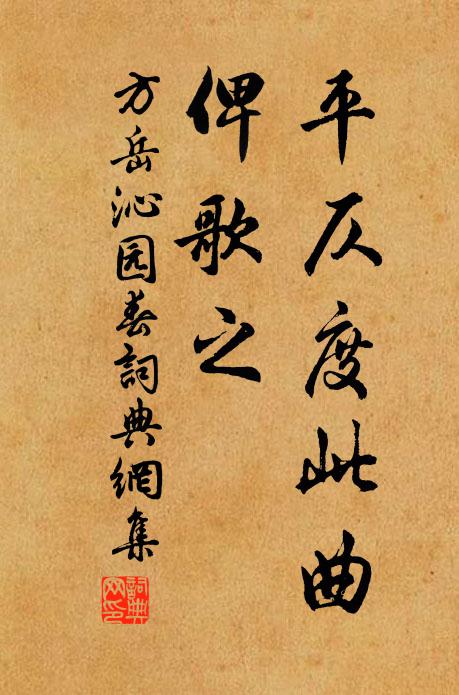 平仄度此曲
俾歌之
方岳沁园春詞典網集
詞典网印